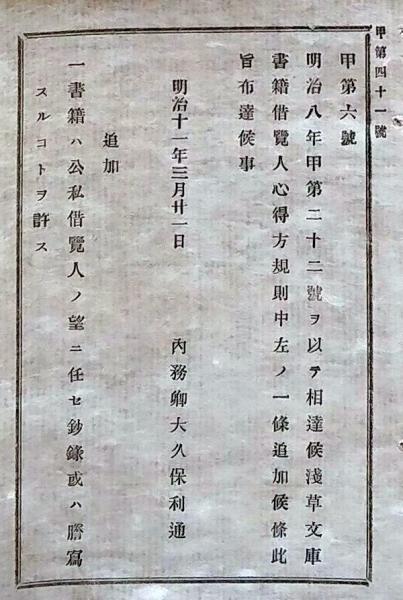 甲第四十一號
甲第六號
明治八年甲第二十二號ヲ以テ相達候淺草文庫
書籍借覽人心得方規則中左ノ一條追加候條此
旨布達候事
明治十一年三月廿一日 內務卿大久保利通
追加
一書籍ハ公私借覽人ノ望ニ任セ鈔錄或ハ謄寫
スルコトヲ許ス